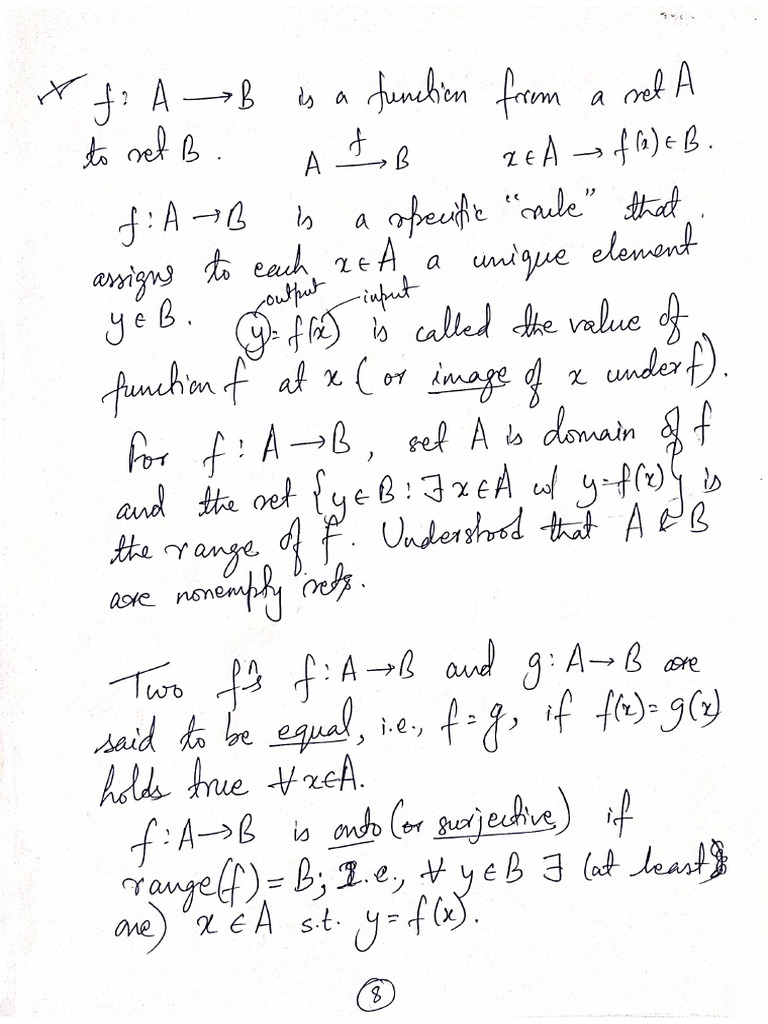 * f: A → B is a function from a set A
to set B. A —f→ B x ∈ A → f(x) ∈ B.
f: A → B is a specific "rule" that
assigns to each x ∈ A a unique element
output input
y ∈ B. y = f(x) is called the value of
function f at x (or image of x under f).
For f: A → B, set A is domain of f
and the set {y ∈ B: ∃ x ∈ A w/ y = f(x)} is
the range of f. Understood that A & B
are nonempty sets.
Two fⁿs f: A → B and g: A → B are
said to be equal, i.e., f = g, if f(x) = g(x)
holds true ∀ x ∈ A.
f: A → B is onto (or surjective) if
range(f) = B; i.e., ∀ y ∈ B ∃ (at least
one) x ∈ A s.t. y = f(x).
8